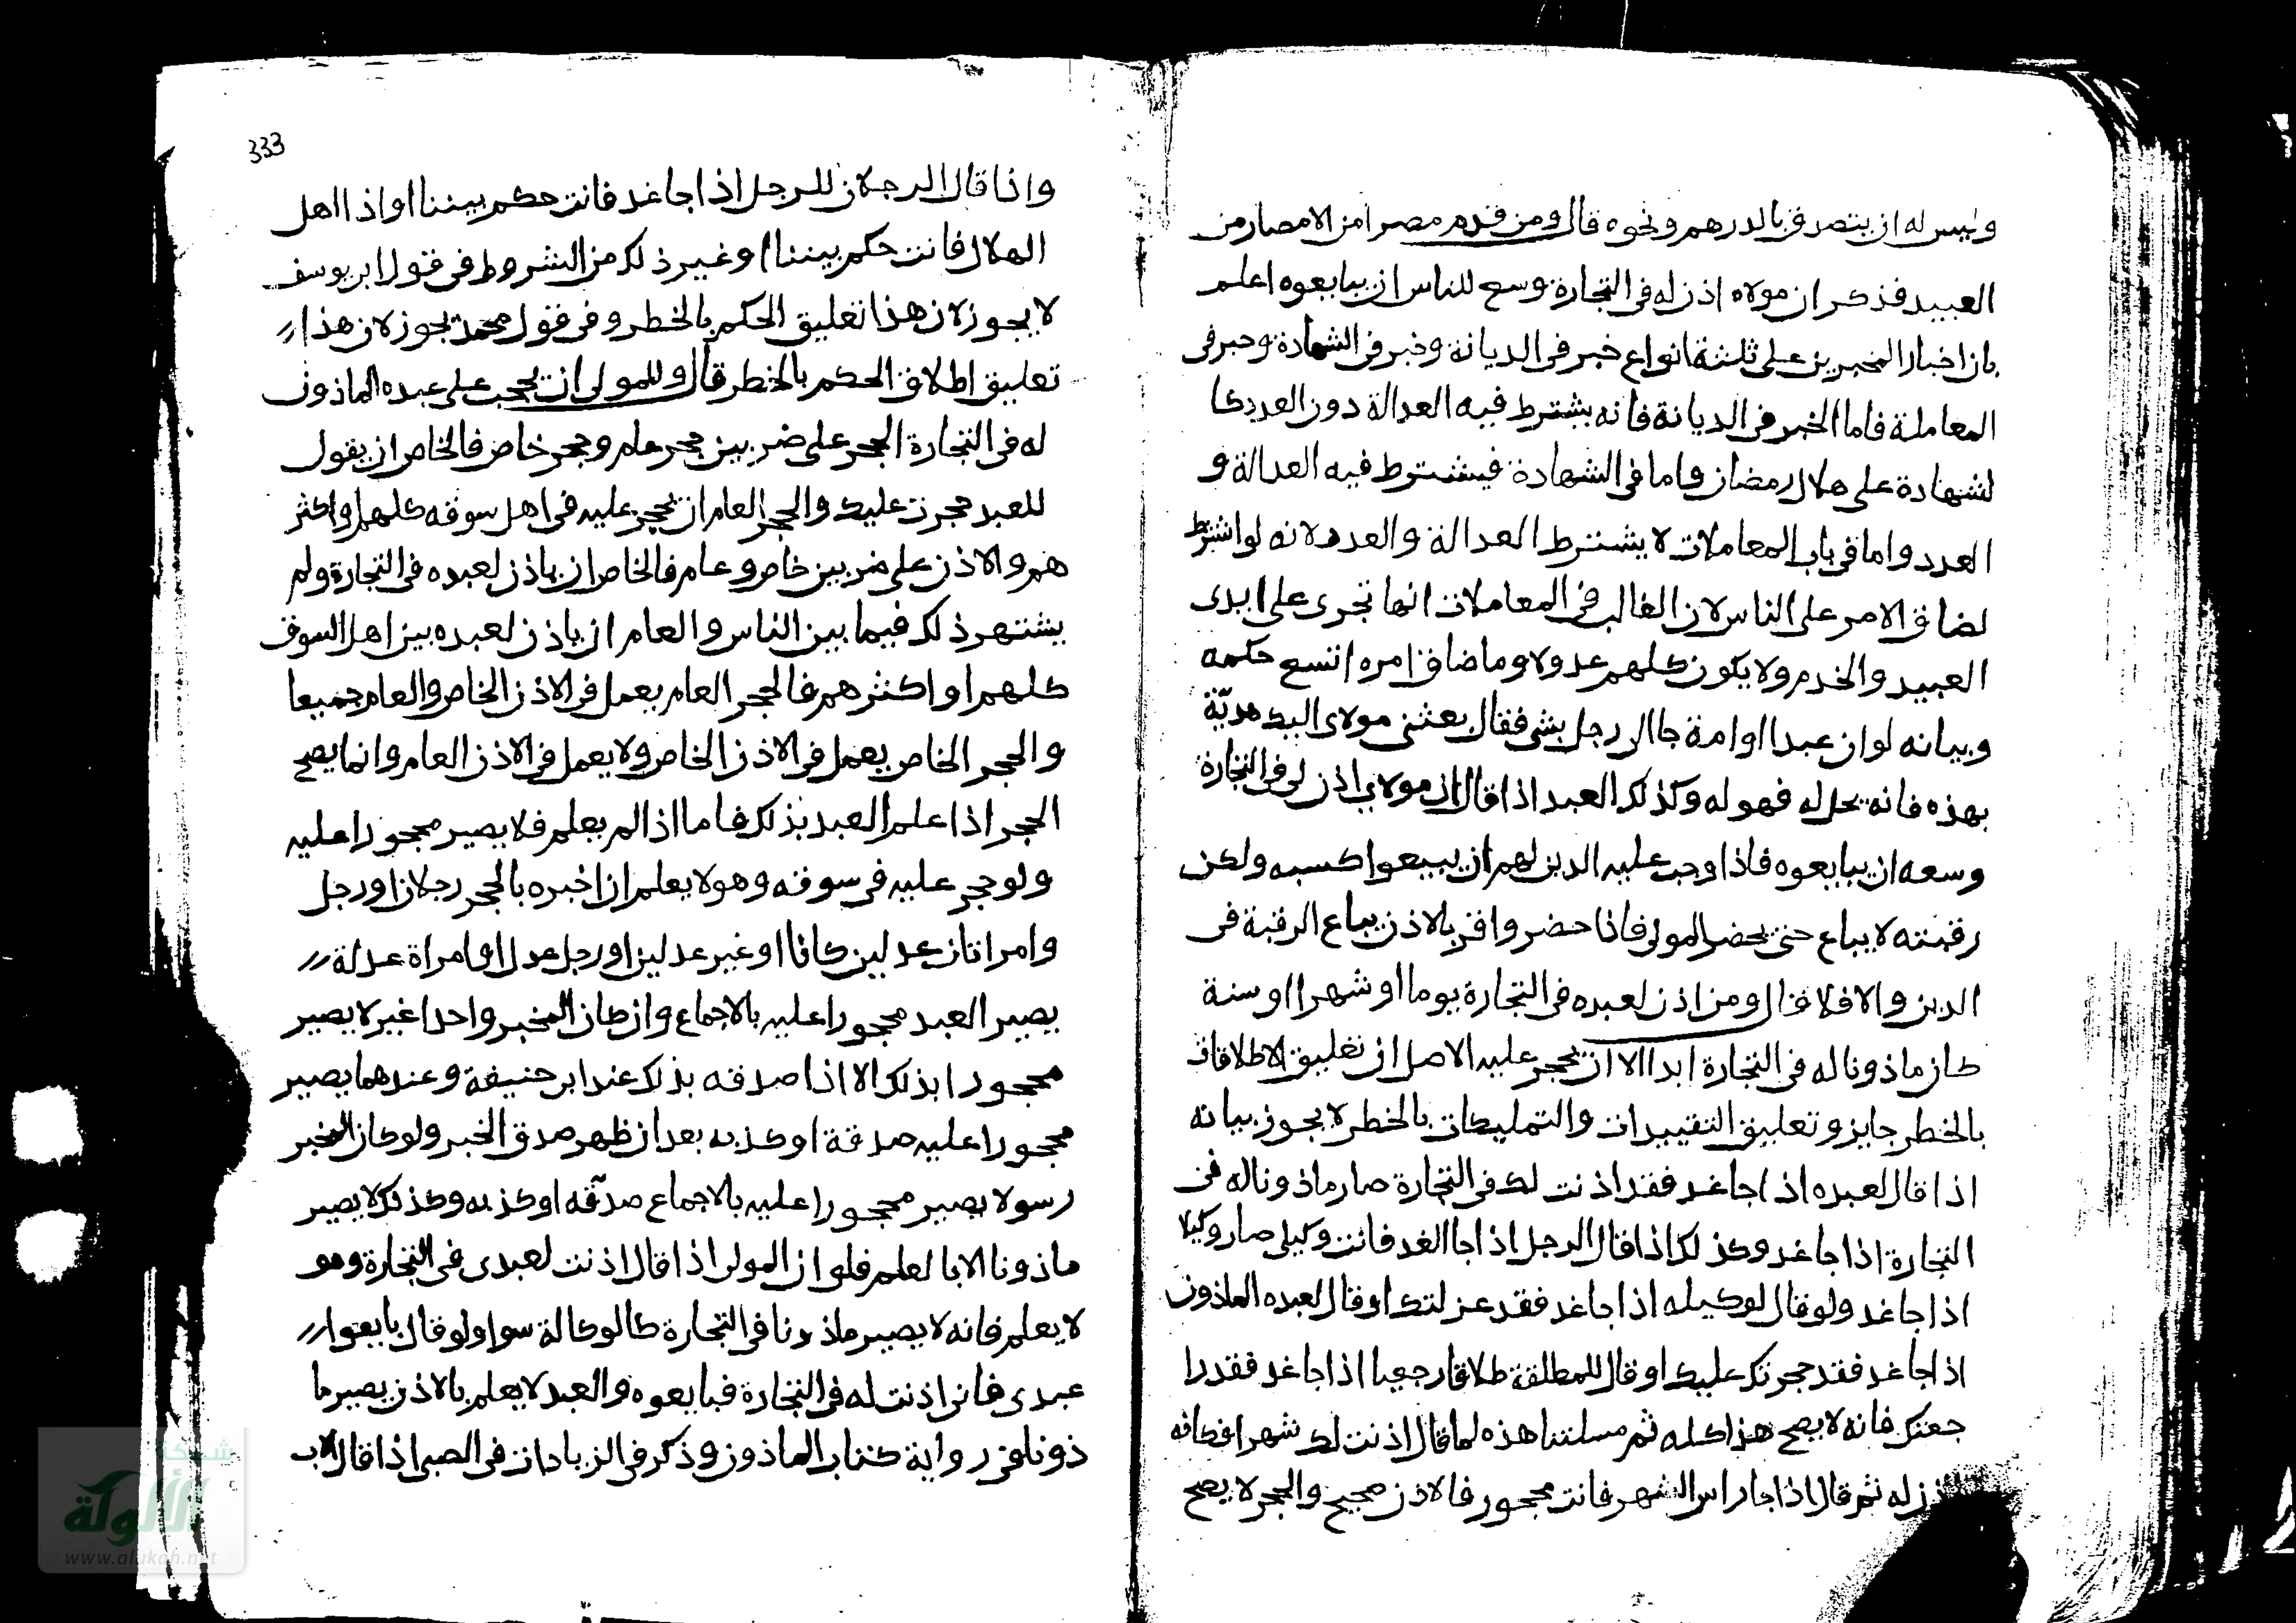 وليس له ان يتصدق بالدرهم ونحوه قال ومن قدم مصرا من الامصار من
العبيد فذكر ان مولاه اذن له في التجارة وسع للناس ان يبايعوه اعلم
بان اخبار المخبرين على ثلثة انواع خبر في الديانة وخبر في الشهادة وخبر في
المعاملة فاما الخبر في الديانة فانه يشترط فيه العدالة دون العدد كا
لشهادة على هلال رمضان واما في الشهادة فيشترط فيه العدالة و
العدد واما في باب المعاملات لا يشترط العدالة والعدد لانه لو اشترط
لضاق الامر على الناس لان الغالب في المعاملات انها تجرى على ايدى
العبيد والخدم ولا يكون كلهم عدولا وما ضاق امره اتسع حكمه
وبيانه لو ان عبدا او امة جا الى رجل بشى فقال بعثنى مولاى اليك هديّة
بهذه فانه يحل له فهو له وكذلك العبد اذا قال ان مولاي اذن لى في التجارة
وسعه ان يبايعوه فاذا وجب عليه الدين لهم ان يبيعوا كسبه ولكن
رقبته لا يباع حتى يحضر المولى فاذا حضر واقر بالاذن يباع الرقبة في
الدين والا فلا قال ومن اذن لعبده في التجارة يوما او شهرا او سنة
كان ماذونا له في التجارة ابدا الا ان يحجر عليه الاصل ان تعليق الاطلاقات
بالخطر جايز وتعليق التقييدات والتمليكات بالخطر لا يجوز بيانه
اذا قال لعبده اذا جا غد فقد اذنت لك في التجارة صار ماذونا له في
التجارة اذا جا غد وكذلك اذا قال الرجل اذا جا الغد فانت وكيلى صار وكيلا
اذا جا غد ولو قال لوكيله اذا جا غد فقد عزلتك او قال لعبده الماذون
اذا جا غد فقد حجرتك عليك او قال للمطلقة طلاقا رجعيا اذا جا غد فقد را
جعتك فانه لا يصح هذا كله ثم مسئلتنا هذه لما قال اذنت لك شهرا فكانه
اذن له ثم قال اذا جا راس الشهر فانت محجور فالاذن صحيح والحجر لا يصح
333
واذا قال الرجلان للرجل اذا جا غد فانت حكم بيننا او اذا اهل
الهلال فانت حكم بيننا او غير ذلك من الشروط في قول ابى يوسف
لا يجوز لان هذا تعليق الحكم بالخطر وفى قول محمد يجوز لان هذا
تعليق اطلاق الحكم بالخطر قال وللمولى ان يحجب على عبده الماذون
له في التجارة الحجر على ضربين حجر عام وحجر خاص فالخاص ان يقول
للعبد حجرت عليك والحجر العام ان يحجر عليه في اهل سوقه كلهم او اكثر
هم والاذن على ضربين خاص وعام فالخاص ان ياذن لعبده في التجارة ولم
يشتهر ذلك فيما بين الناس والعام ان ياذن لعبده بين اهل السوق
كلهم او اكثرهم فالحجر العام يعمل في الاذن الخاص والعام جميعا
والحجر الخاص يعمل في الاذن الخاص ولا يعمل في الاذن العام وانما يصح
الحجر اذا علم العبد بذلك فاما اذا لم يعلم فلا يصير محجورا عليه
ولو حجر عليه في سوقه وهو لا يعلم ان اخبره بالحجر رجلان او رجل
وامراتان عدلين كانا او غير عدلين او رجل عدل او امراة عدلة
يصير العبد محجورا عليه بالاجماع وان كان المخبر واحدا غير لا يصير
محجورا بذلك الا اذا صدقه بذلك عند ابى حنيفة وعندهما يصير
محجورا عليه صدقة او كذبه بعد ان ظهر صدق الخبر ولو كان المخبر
رسولا يصير محجورا عليه بالاجماع صدّقه او كذبه وكذلك لا يصير
ماذونا الا بالعلم فلو ان المولى اذا قال اذنت لعبدى في التجارة وهو
لا يعلم فانه لا يصير ماذونا في التجارة كالوكالة سوا ولو قال بايعوا
عبدى فانى اذنت له في التجارة فبايعوه والعبد لا يعلم بالاذن يصير ما
ذونا في رواية كتاب الماذون وذكر في الزيادات في الصبى اذا قال الاب
شبكة
الألوكة
www.alukah.net